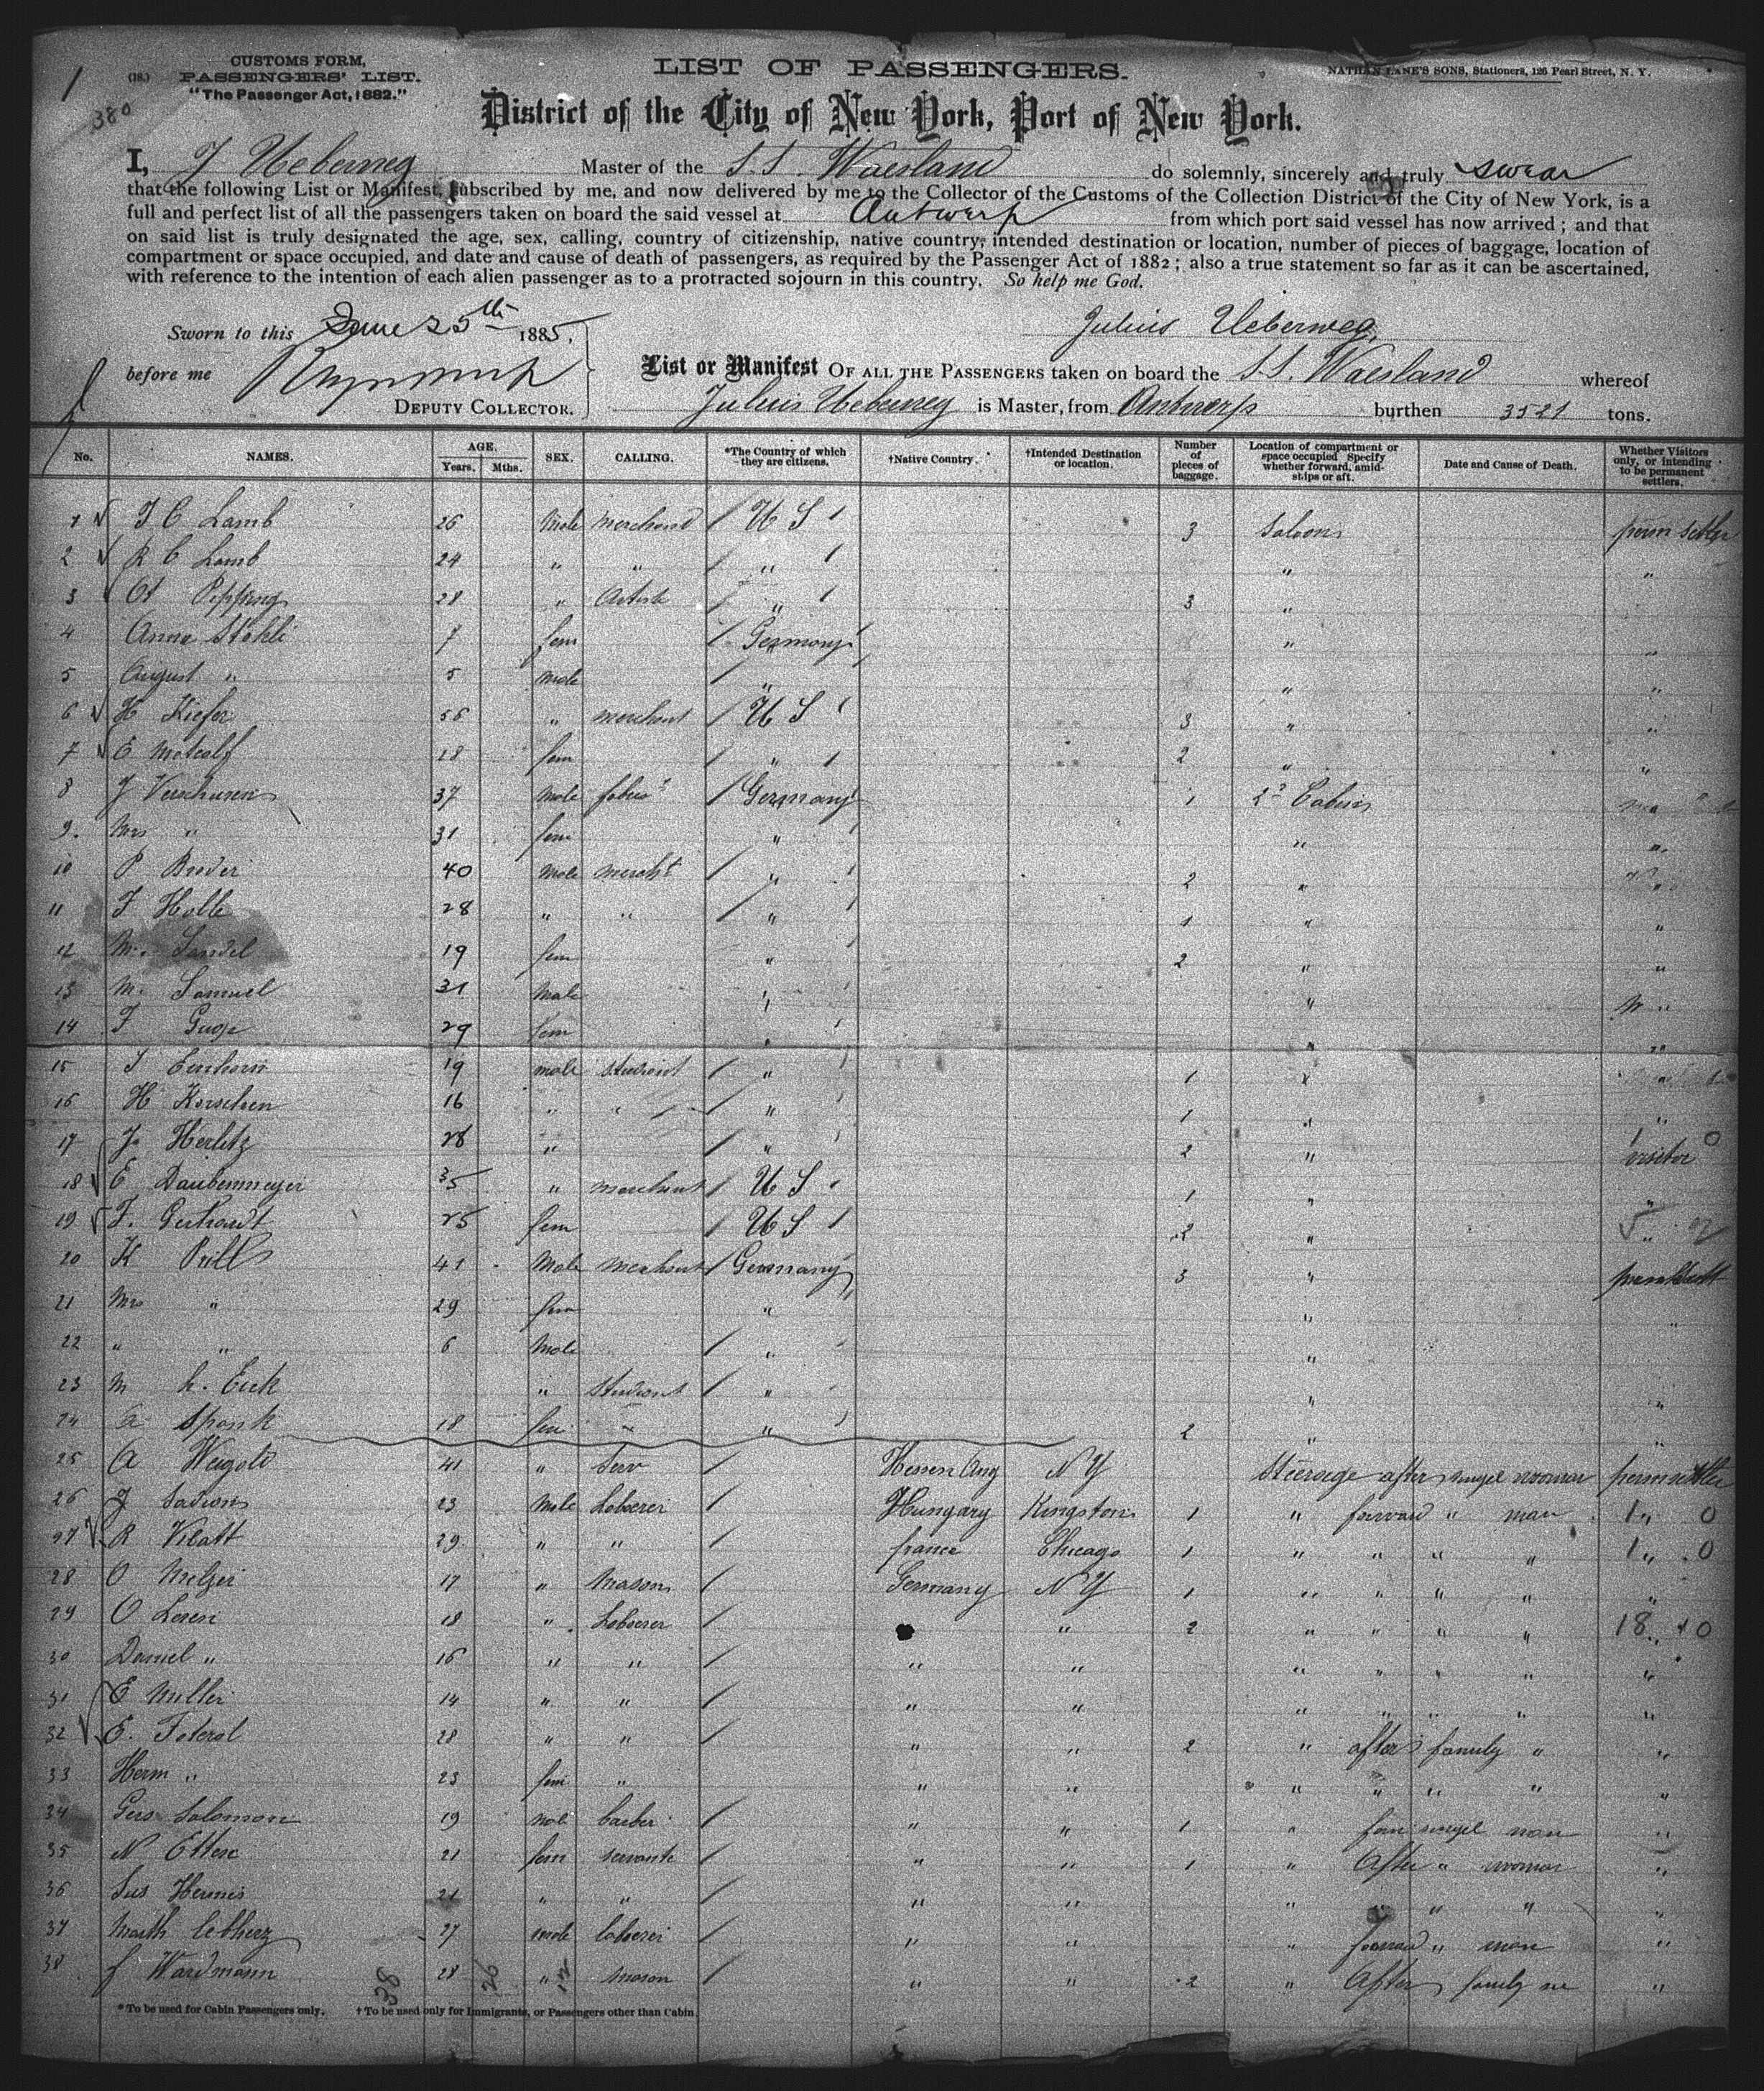 1
380
CUSTOMS FORM,
(18.) PASSENGERS' LIST.
"The Passenger Act, 1882."
LIST OF PASSENGERS.
NATHAN LANE'S SONS, Stationers, 126 Pearl Street, N. Y.
District of the City of New York, Port of New York.
I, J Ueberweg Master of the S.S. Waesland do solemnly, sincerely and truly swear
that the following List or Manifest, subscribed by me, and now delivered by me to the Collector of the Customs of the Collection District of the City of New York, is a
full and perfect list of all the passengers taken on board the said vessel at Antwerp from which port said vessel has now arrived; and that
on said list is truly designated the age, sex, calling, country of citizenship, native country, intended destination or location, number of pieces of baggage, location of
compartment or space occupied, and date and cause of death of passengers, as required by the Passenger Act of 1882; also a true statement so far as it can be ascertained,
with reference to the intention of each alien passenger as to a protracted sojourn in this country. So help me God.
Sworn to this June 25th 1885,
Julius Ueberweg
before me
DEPUTY COLLECTOR.
List or Manifest OF ALL THE PASSENGERS taken on board the S.S. Waesland whereof
Julius Ueberweg is Master, from Antwerp burthen 3521 tons.
No. NAMES. AGE. Years. Mths. SEX. CALLING. *The Country of which they are citizens. †Native Country. †Intended Destination or location. Number of pieces of baggage. Location of compartment or space occupied Specify whether forward, amidships or aft. Date and Cause of Death. Whether Visitors only, or intending to be permanent settlers.
1 J C Lamb 26 Male merchand U S 3 Saloon perm settler
2 R C Lamb 24 " " " " "
3 Ot Pepping 28 " Artist " 3 "
4 Anna Stohli 7 fem Germany " "
5 August " 5 male " " "
6 H Kiefer 56 " merchant U S 3 " "
7 E Metcalf 28 fem " 2 " "
8 J Verschuren 37 male Germany 1 2d Cabin
9. Mrs " 31 fem " " "
10 P 40 male mercht " 2 " "
11 F Holle 28 " " " 1 " "
12 19 fem " 2 " "
13 M. Samuel 31 Male " "
14 F 29 fem " " "
15 J Einhorn 19 male student " 1 "
16 H Korschen 16 " " " 1 " "
17 J. Herlitz 28 " " 2 " visitor
18 E Daubenmeyer 35 " merchant U S 1 " "
19 F. Gerhardt 25 fem U S 2 " "
20 K Prill 41 Male merchant Germany 3 "
21 Mrs " 29 fem " " "
22 " " 6 Male " "
23 M h. Eick " student " " "
24 a Spank 18 fem " 2 " "
25 A Weigold 41 " Serv N Y Steerage after singel woman perm settler
26 J 23 Male Laborer Hungary Kingston 1 " forward " man 1 " 0
27 R Klatt 29 " " france Chicago 1 " " " " 1 " 0
28 O Melzer 17 " Mason Germany N Y 1 " " " " "
29 O Leren 18 " Laborer " 2 " " " " 18 " + 0
30 Daniel " 16 " " " " " " " " "
31 E Miller 14 " " " " " " " " "
32 E. Foterol 28 " " " " 2 " after family " "
33 Herm " 23 fem " " " " " " " "
34 Gers Salomon 19 male barber " " 1 " singel man "
35 N 21 fem servante " " 1 " After " woman "
36 Sus Hermes 21 " " " " " " " " "
37 27 male laborer " " " forward " man "
38 J Wardmann 28 " Mason " " 2 " After family "
38 26 12
*To be used for Cabin Passengers only. †To be used only for Immigrants, or Passengers other than Cabin.